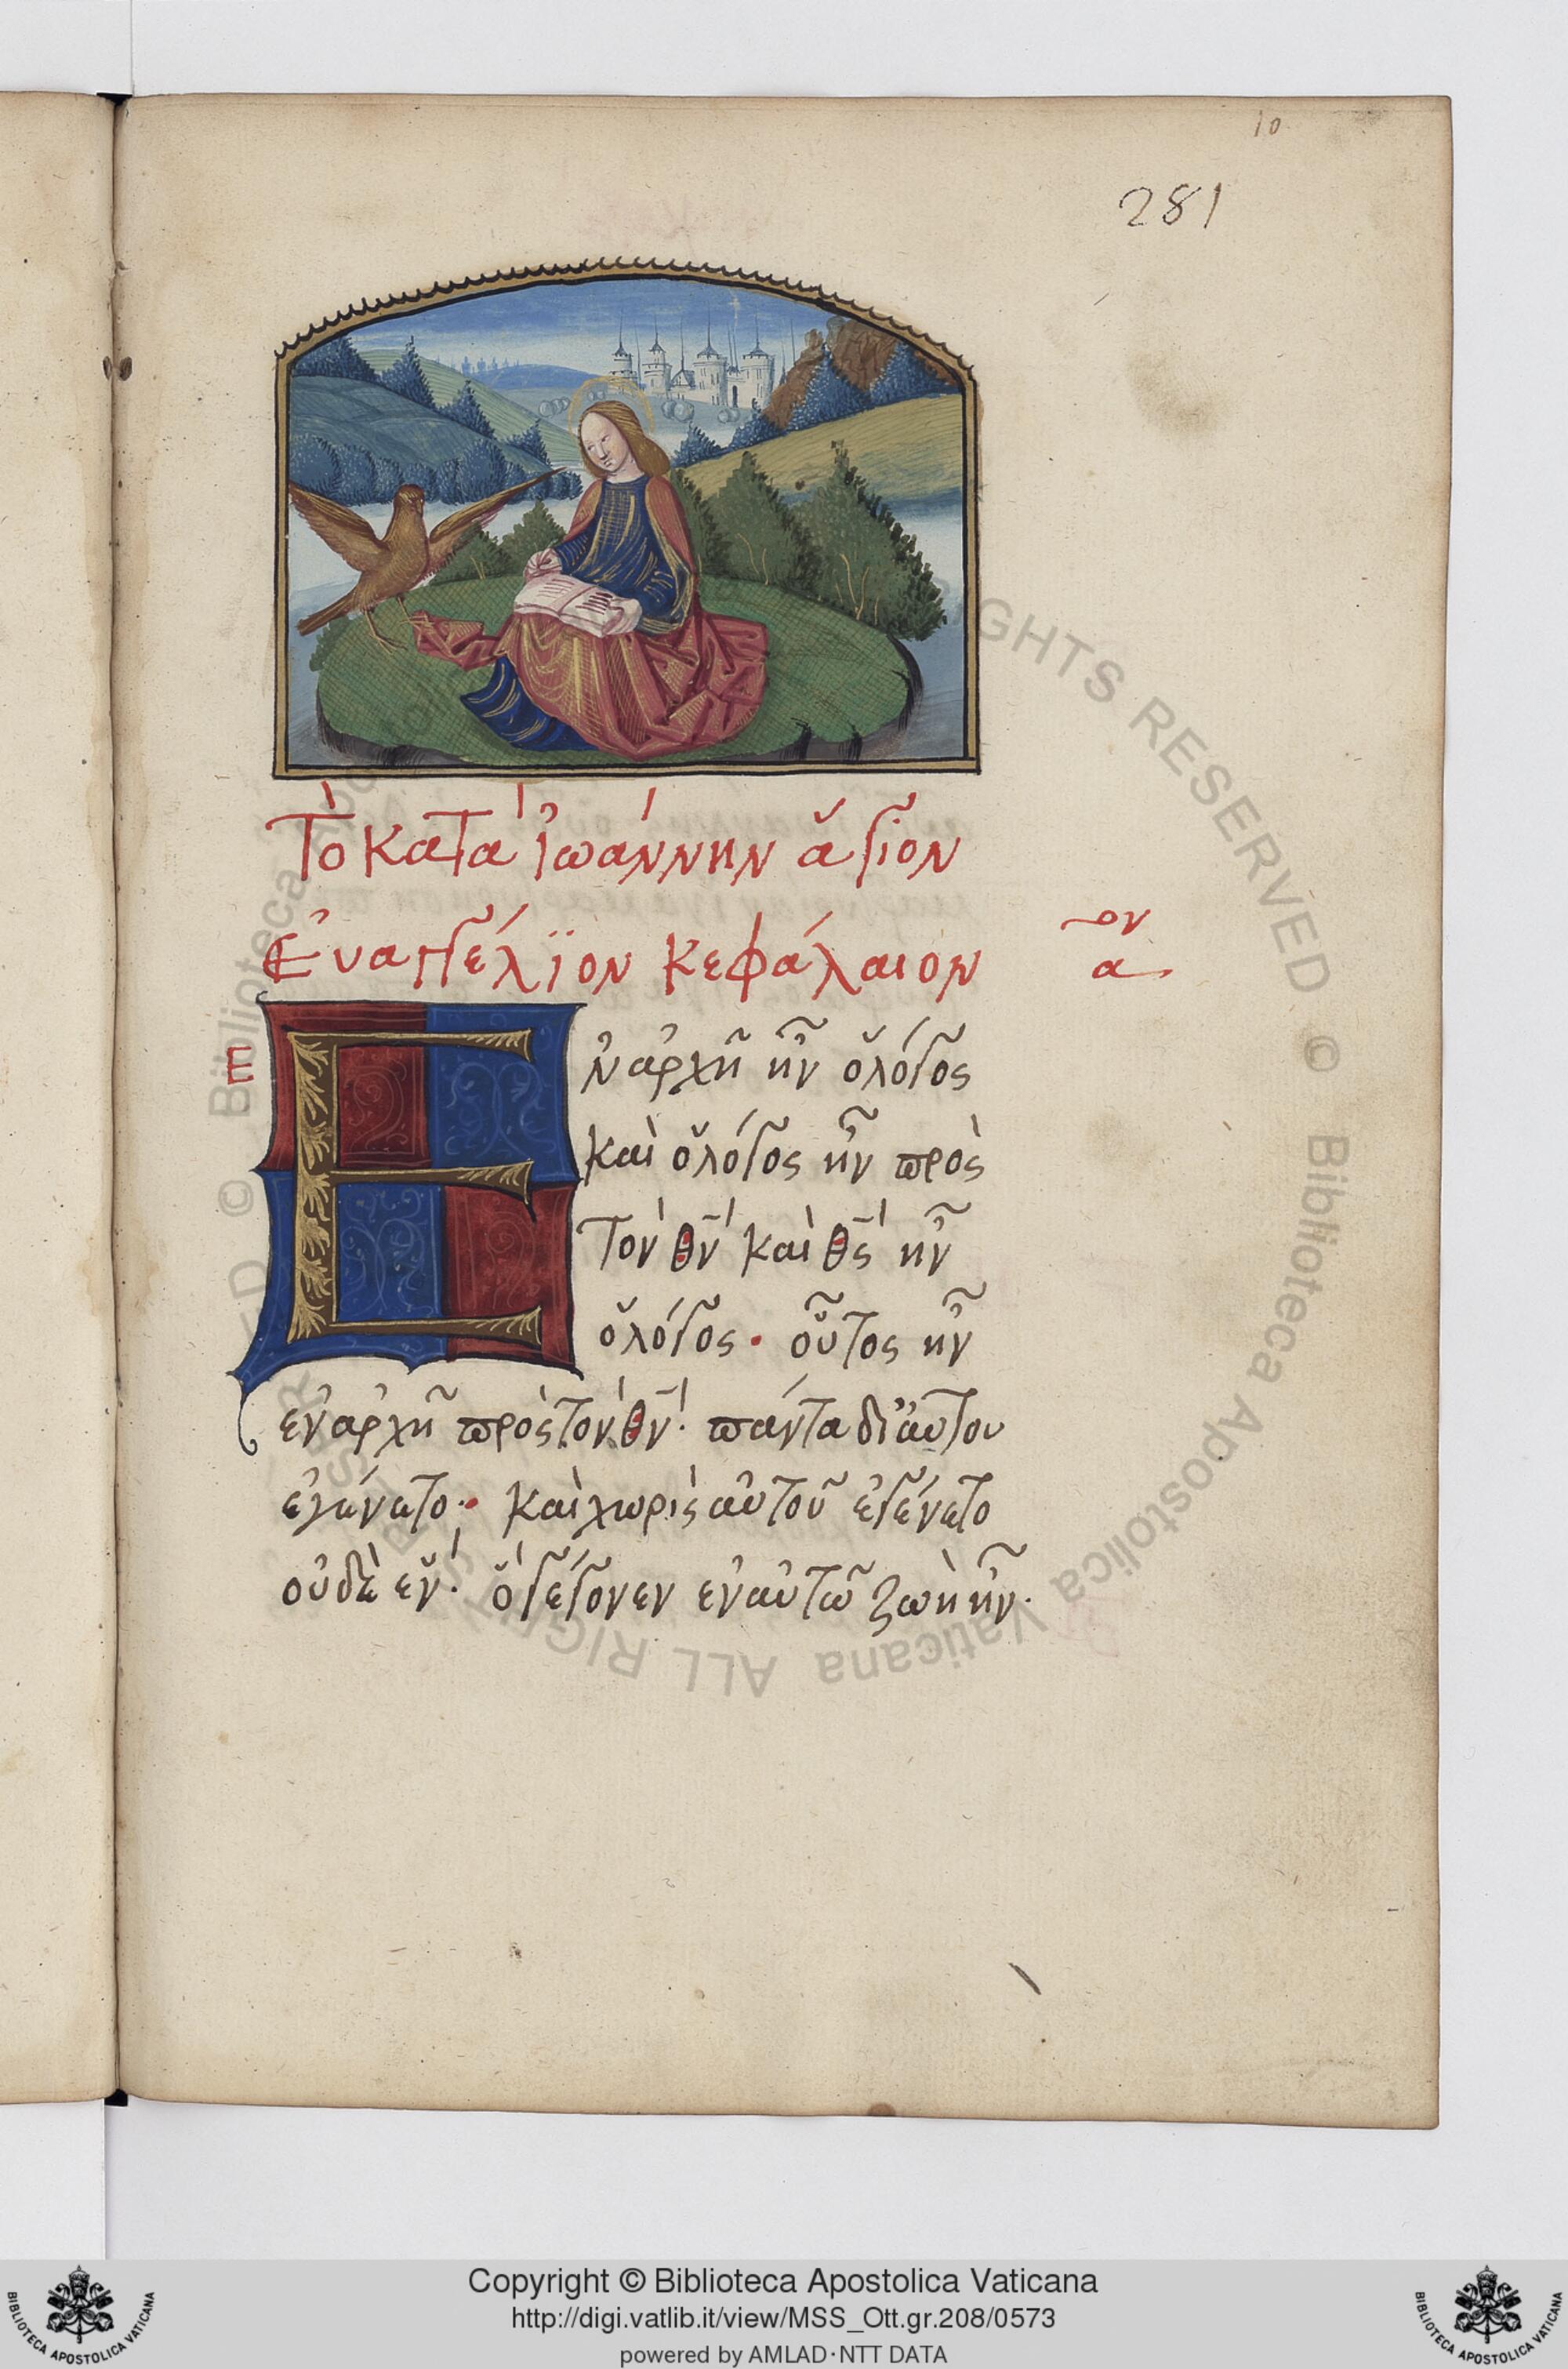 10
281
Τὸ Κατὰ Ἰωάννην ἅγιον
Ἐυαγγέλϊον Κεφάλαιον α ον
Ε
Ἐν ἀρχῆ ἦν ὁ λόγος
καὶ ὁ λόγος ἦν πρὸς
τὸν θν̄ καὶ θς̄ ἦν
ὁ λόγος· οὗτος ἦν
ἐν ἀρχῆ πρὸς τὸν θν̄· πάντα δι ἀυτου
ἐγένετο· καὶ χωρὶς αὐτοῦ ἐγένετο
οὐδὲ ἕν· ὃ γέγονεν ἐν αὐτῶ ζωὴ ἦν·
© Biblioteca Apostolica Vaticana ALL RIGHTS RESERVED
Copyright © Biblioteca Apostolica Vaticana
http://digi.vatlib.it/view/MSS_Ott.gr.208/0573
powered by AMLAD·NTT DATA
BIBLIOTECA APOSTOLICA VATICANA
BIBLIOTECA APOSTOLICA VATICANA